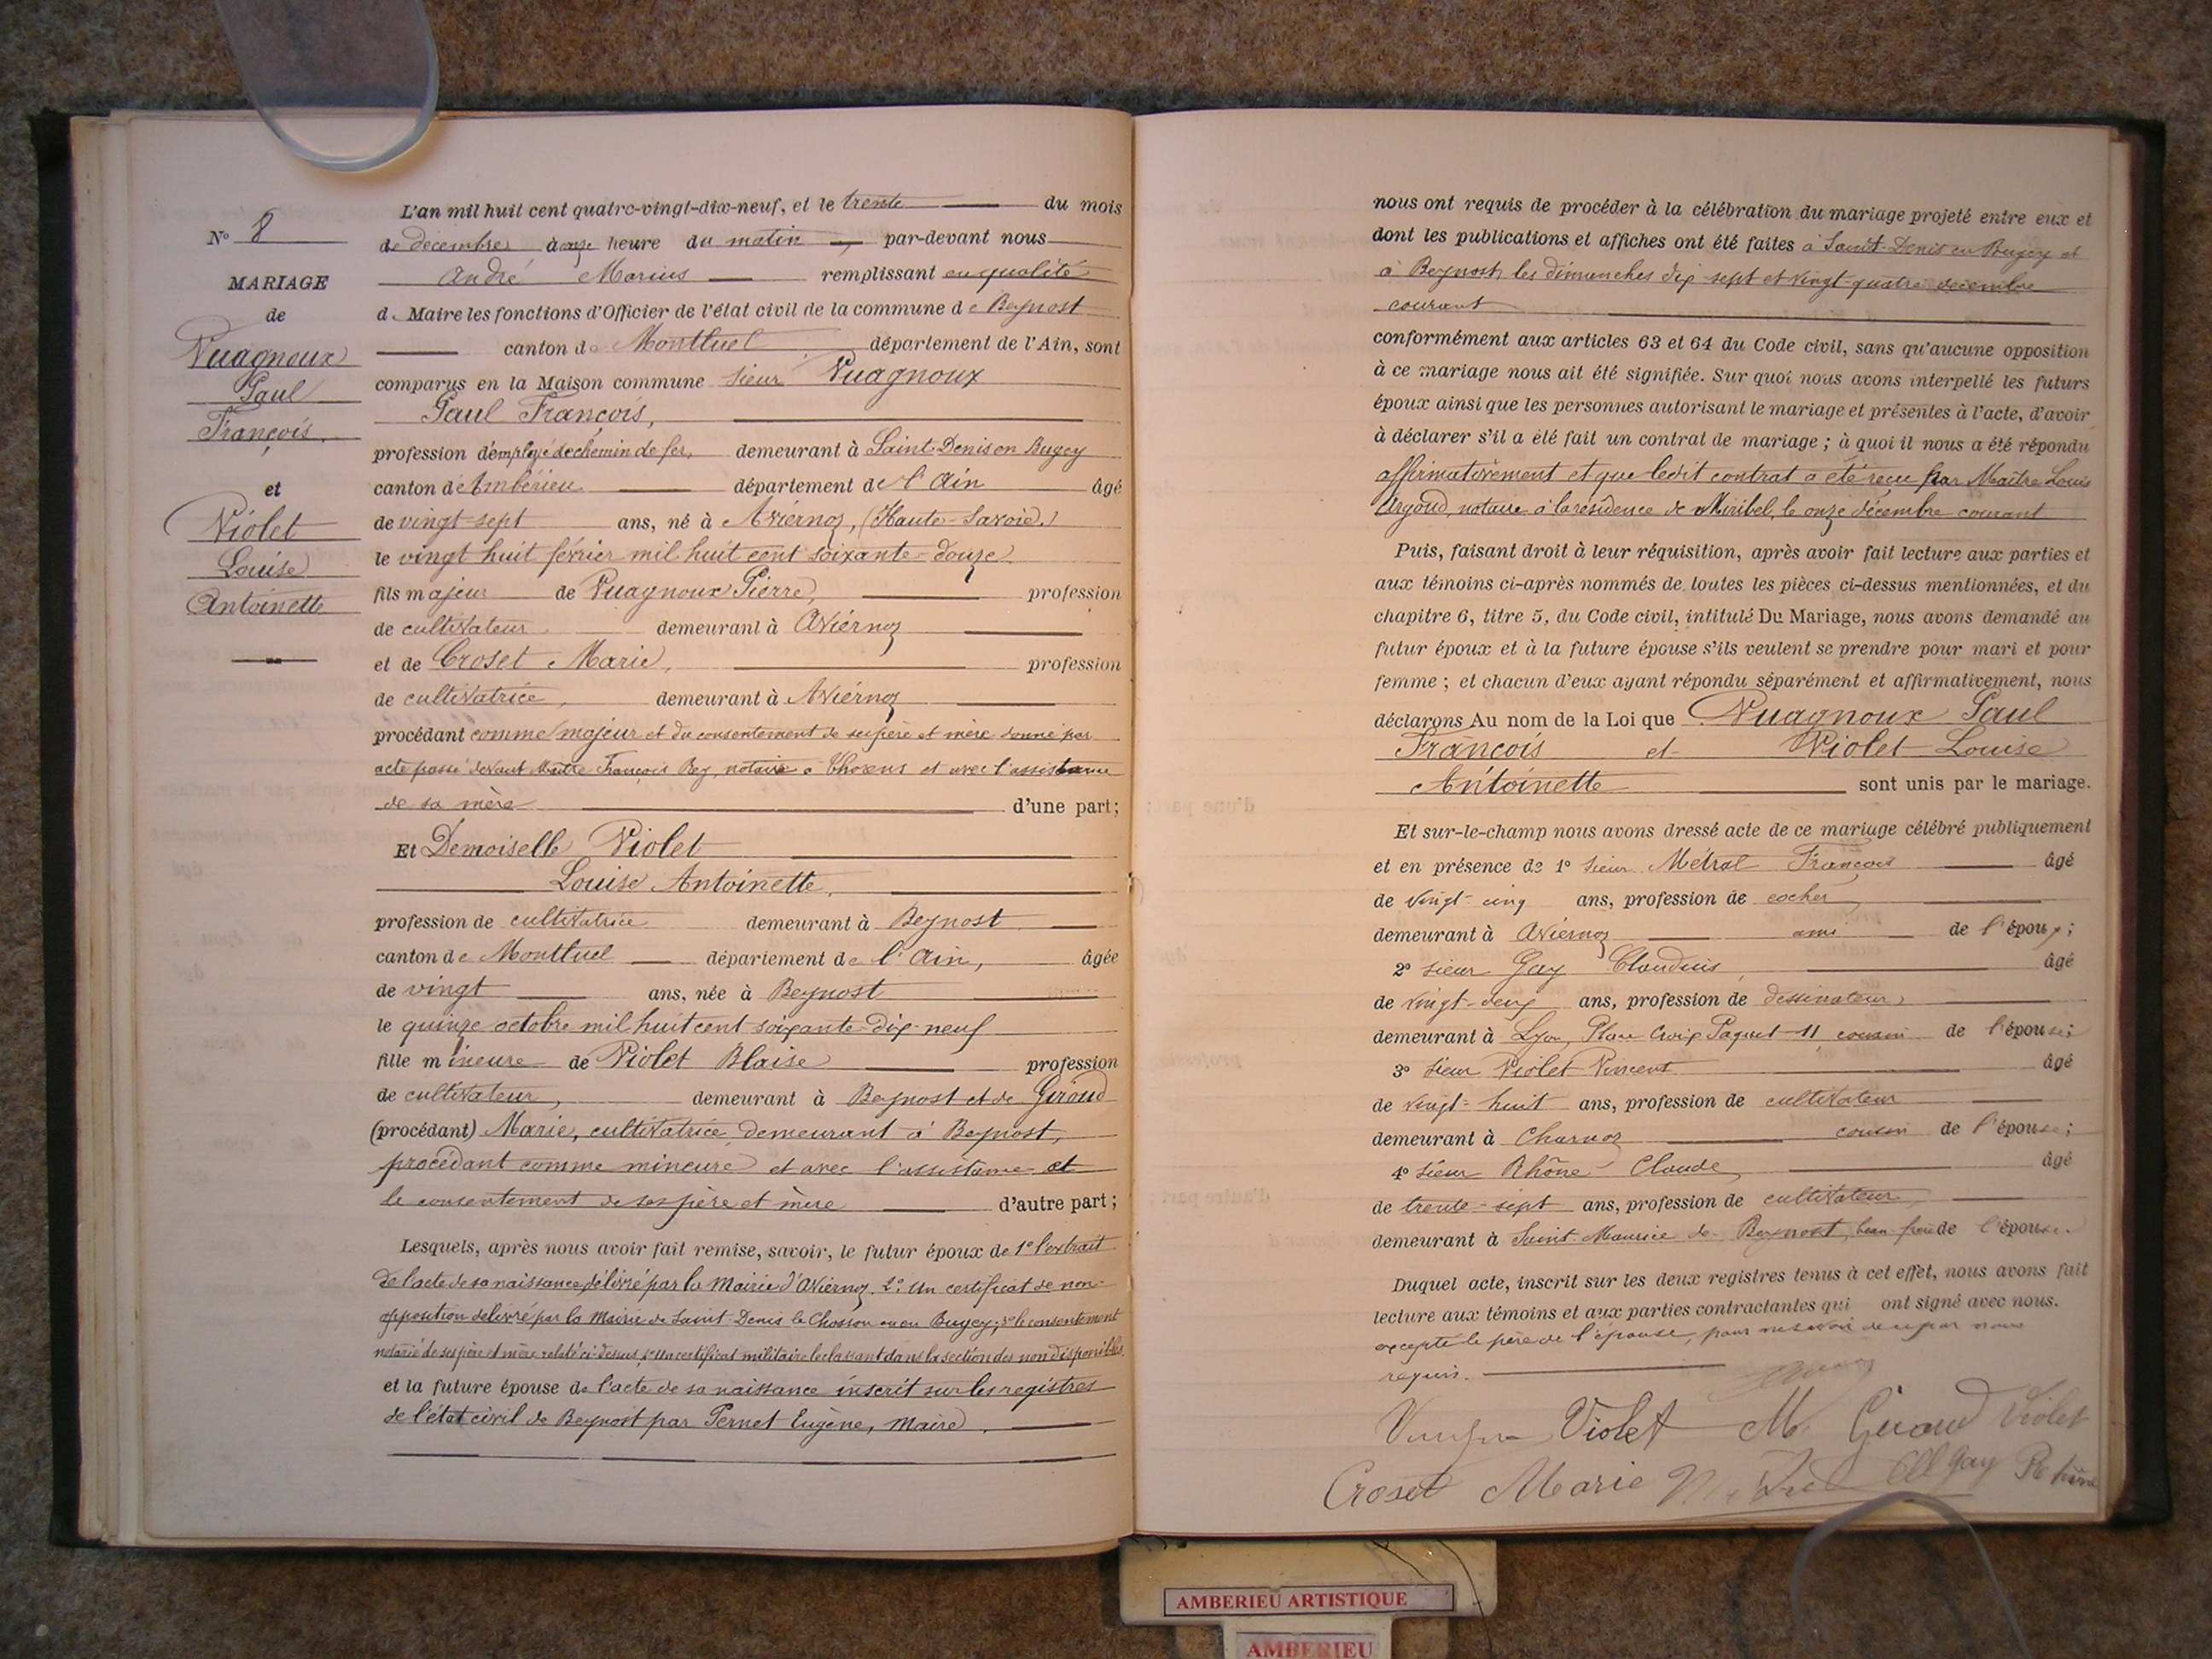 N° 8
MARIAGE
de
Vuagnoux
Paul
François,
et
Violet
Louise
Antoinette
L'an mil huit cent quatre-vingt-dix-neuf, et le trente du mois
de décembre à onze heure du matin, par-devant nous
André Marius remplissant en qualité
de Maire les fonctions d'Officier de l'état civil de la commune de Beynost
canton de Montluel département de l'Ain, sont
comparus en la Maison commune sieur Vuagnoux
Paul François,
profession d'employé de chemin de fer, demeurant à Saint-Denis en Bugey
canton d'Ambérieu département de l'Ain âgé
de vingt-sept ans, né à Aviernoz, (Haute-Savoie)
le vingt huit février mil huit cent soixante-douze
fils majeur de Vuagnoux Pierre, profession
de cultivateur demeurant à Aviérnoz
et de Croset Marie, profession
de cultivatrice, demeurant à Aviérnoz
procédant comme majeur et du consentement de ses père et mère donné par
acte passé devant Maître François Rey, notaire à Thorens et avec l'assistance
de sa mère d'une part;
Et Demoiselle Violet
Louise Antoinette,
profession de cultivatrice demeurant à Beynost
canton de Montluel département de l'Ain, âgée
de vingt ans, née à Beynost
le quinze octobre mil huit cent soixante-dix-neuf
fille mineure de Violet Blaise profession
de cultivateur, demeurant à Beynost et de Giroud
(procédant) Marie, cultivatrice demeurant à Beynost,
procédant comme mineure et avec l'assistance et
le consentement de ses père et mère d'autre part;
Lesquels, après nous avoir fait remise, savoir, le futur époux de 1° l'extrait
de l'acte de sa naissance délivré par la Mairie d'Aviernoz. 2° Un certificat de non-
opposition délivré par la Mairie de Saint-Denis le Chosson ou en Bugey; 3° le consentement
notarié de ses père et mère relaté ci-dessus, 4° un certificat militaire le classant dans la section des non disponibles.
et la future épouse de l'acte de sa naissance inscrit sur les registres
de l'état civil de Beynost par Pernet Eugène, Maire.
nous ont requis de procéder à la célébration du mariage projeté entre eux et
dont les publications et affiches ont été faites à Saint-Denis en Bugey et
à Beynost, les dimanches dix-sept et vingt-quatre décembre
courant
conformément aux articles 63 et 64 du Code civil, sans qu'aucune opposition
à ce mariage nous ait été signifiée. Sur quoi nous avons interpellé les futurs
époux ainsi que les personnes autorisant le mariage et présentes à l'acte, d'avoir
à déclarer s'il a été fait un contrat de mariage; à quoi il nous a été répondu
affirmativement et que ledit contrat a été reçu par Maître Louis
Argoud, notaire à la résidence de Miribel, le onze décembre courant
Puis, faisant droit à leur réquisition, après avoir fait lecture aux parties et
aux témoins ci-après nommés de toutes les pièces ci-dessus mentionnées, et du
chapitre 6, titre 5, du Code civil, intitulé Du Mariage, nous avons demandé au
futur époux et à la future épouse s'ils veulent se prendre pour mari et pour
femme; et chacun d'eux ayant répondu séparément et affirmativement, nous
déclarons Au nom de la Loi que Vuagnoux Paul
François et Violet Louise
Antoinette sont unis par le mariage.
Et sur-le-champ nous avons dressé acte de ce mariage célébré publiquement
et en présence de 1° sieur Métral François âgé
de vingt-cinq ans, profession de cocher
demeurant à Aviernoz ami de l'époux;
2° sieur Gay Claudius, âgé
de vingt-deux ans, profession de dessinateur,
demeurant à Lyon, Place Croix Paquet 11 cousin de l'épouse;
3° sieur Violet Vincent âgé
de vingt-huit ans, profession de cultivateur
demeurant à Charnoz cousin de l'épouse;
4° sieur Rhône Claude, âgé
de trente-sept ans, profession de cultivateur,
demeurant à Saint-Maurice de Beynost, beau-frère de l'épouse.
Duquel acte, inscrit sur les deux registres tenus à cet effet, nous avons fait
lecture aux témoins et aux parties contractantes qui ont signé avec nous.
excepté le père de l'épouse, pour ne savoir de ce par nous
requis.
Violet M. Giroud Violet
Croset Marie Cl Gay Rhône
AMBERIEU ARTISTIQUE
AMBERIEU